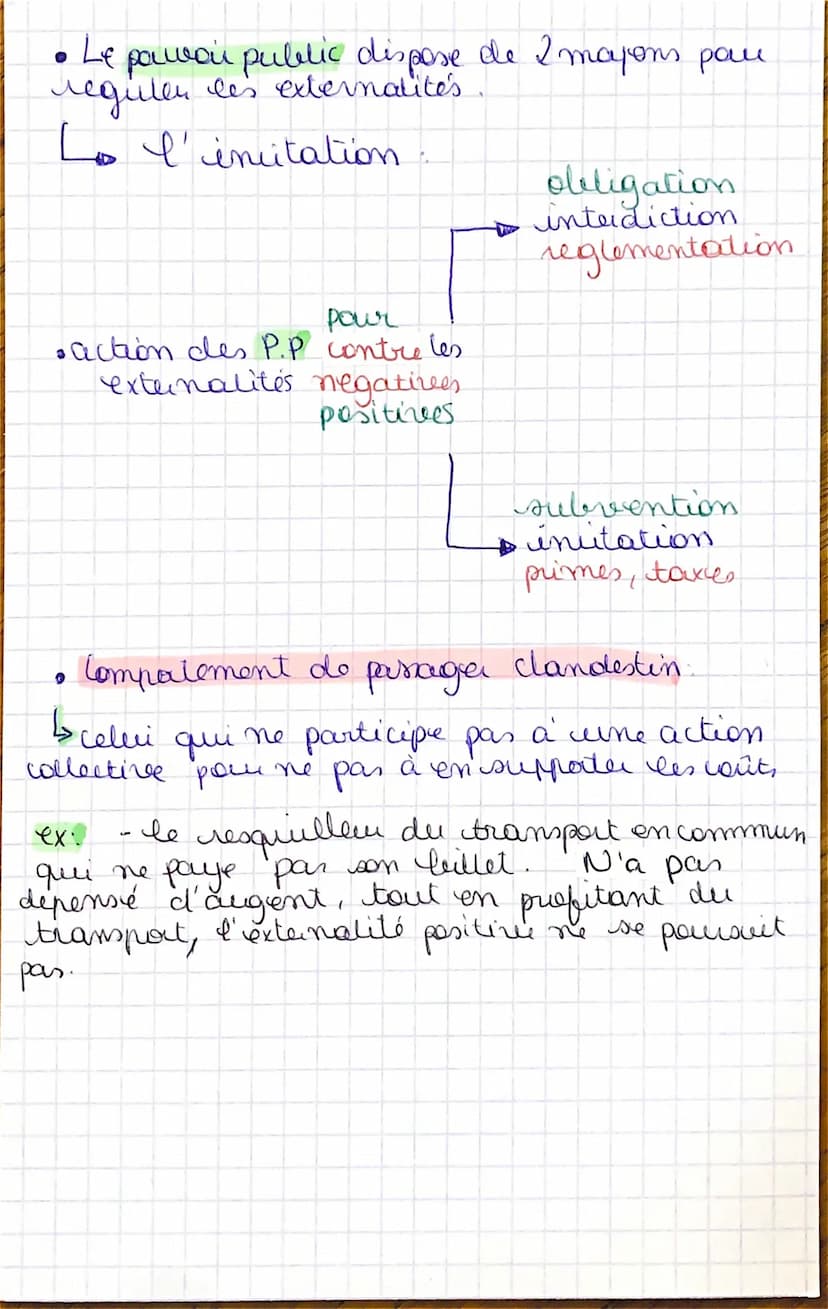 • Le pouvoir public dispose de 2 mayons pour
reguler les externalités.
↳ l'incitation :
obligation
interdiction
reglementation
pour
• action des P.P contre les
externalités negatives
positives
subvention
incitation
primes, taxes
• Comportement de passager clandestin.
↳ celui qui ne participe pas à une action
collective pour ne pas à en supporter les coûts
ex: - le resquilleur du transport en commun
qui ne paye pas son billet. N'a pas
depensé d'argent, tout en profitant du
transport, l'externalité positive ne se poursuit
pas.